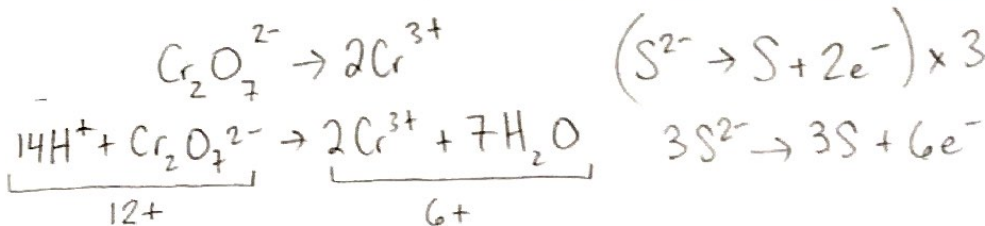 Cr₂O₇²⁻ → 2Cr³⁺
(S²⁻ → S + 2e⁻) × 3
14H⁺ + Cr₂O₇²⁻ → 2Cr³⁺ + 7H₂O
3S²⁻ → 3S + 6e⁻
12+ 6+